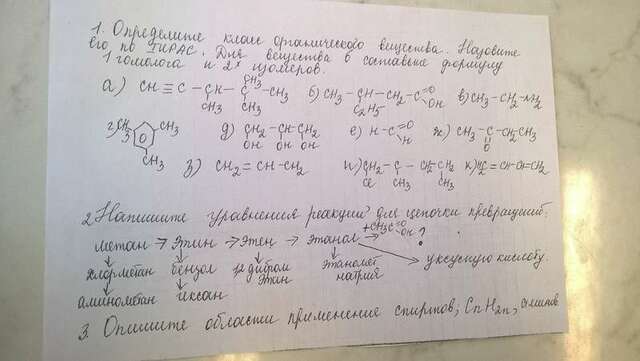 1. Определите класс органического вещества. Назовите
его по IUPAC. Для вещества а составьте формулу
1 гомолога и 2х изомеров.
а) CH≡C–CH–C–CH3 CH3 CH3 CH3 б) CH3–CH–CH2–C O OH C2H5 в) CH3–CH2–NH2
г) CH3 CH3 CH3 д) CH2–CH–CH2 OH OH OH е) H–C O H ж) CH3–C–CH2CH3 O
з) CH2=CH–CH3 и) CH2–C–CH2–CH2 CH3 CH3 к) CH2=CH–CH=CH2
2. Напишите уравнения реакций для цепочки превращений:
метан → этин → этен → этанол → + CH3C O OH ?
хлорметан бензол 1,2 дибром этан этаномет натрия уксусную кислоту.
аминометан гексан
3. Опишите области применения спиртов, CnH2n, аминов